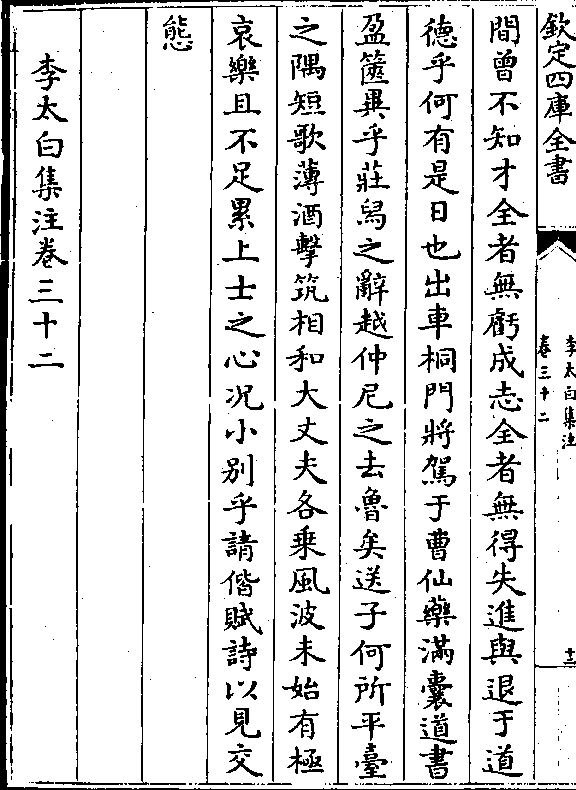 欽定四庫全書
李太白集注
卷三十二
十二
間曾不知才全者無虧成志全者無得失進與退于道
德乎何有是日也出車桐門將駕于曹仙藥滿囊道書
盈篋異乎莊舄之辭越仲尼之去魯矣送子何所平臺
之隅短歌薄酒擊筑相和大丈夫各乘風波未始有極
哀樂且不足累上士之心况小别乎請偕賦詩以見交
態
李太白集注卷三十二